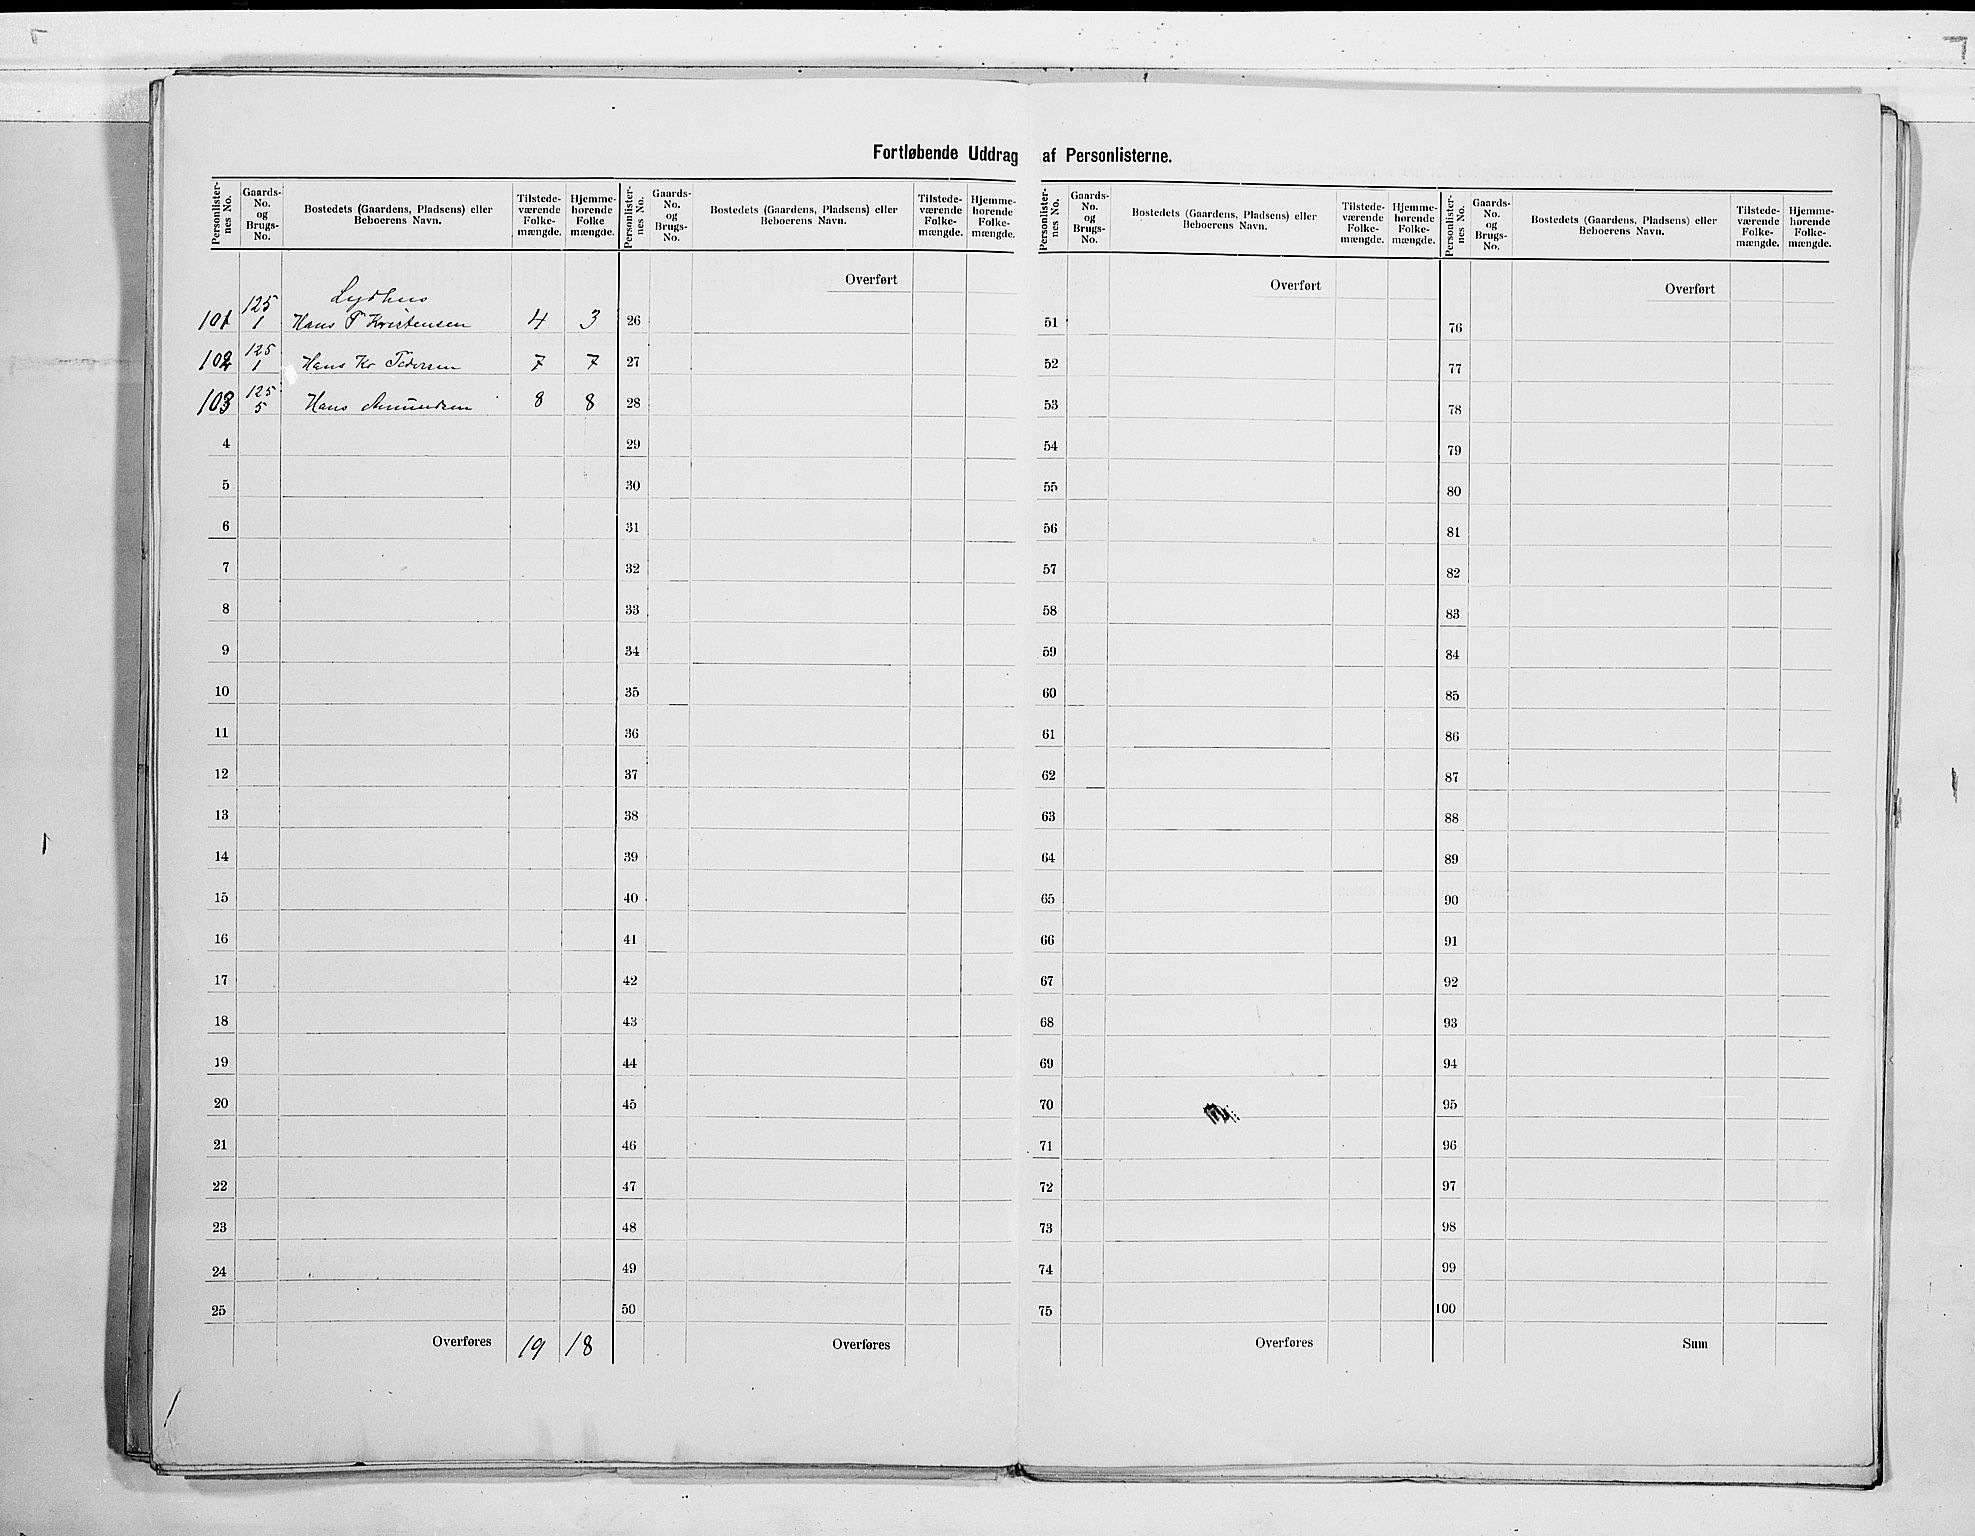 Fortløbende Uddrag af Personlisterne.
Personlister-nes No. | Gaards-No. og Brugs-No. | Bostedets (Gaardens, Pladsens) eller Beboerens Navn. | Tilstede-værende Folke-mængde. | Hjemme-hørende Folke mængde.
Lydhus
101 | 125 1 | Hans P Kristensen | 4 | 3
102 | 125 1 | Hans Kr Pedersen | 7 | 7
103 | 125 5 | Hans Amundsen | 8 | 8
4
5
6
7
8
9
10
11
12
13
14
15
16
17
18
19
20
21
22
23
24
25
Overføres 19 18
Personlister-nes No. | Gaards-No. og Brugs-No. | Bostedets (Gaardens, Pladsens) eller Beboerens Navn. | Tilstede-værende Folke-mængde. | Hjemme-hørende Folke-mængde.
Overført
26
27
28
29
30
31
32
33
34
35
36
37
38
39
40
41
42
43
44
45
46
47
48
49
50
Overføres
Personlister-nes No. | Gaards-No. og Brugs-No. | Bostedets (Gaardens, Pladsens) eller Beboerens Navn. | Tilstede-værende Folke-mængde. | Hjemme-hørende Folke-mængde.
Overført
51
52
53
54
55
56
57
58
59
60
61
62
63
64
65
66
67
68
69
70
71
72
73
74
75
Overføres
Personlister-nes No. | Gaards-No. og Brugs-No. | Bostedets (Gaardens, Pladsens) eller Beboerens Navn. | Tilstede-værende Folke-mængde. | Hjemme-hørende Folke-mængde.
Overført
76
77
78
79
80
81
82
83
84
85
86
87
88
89
90
91
92
93
94
95
96
97
98
99
100
Sum